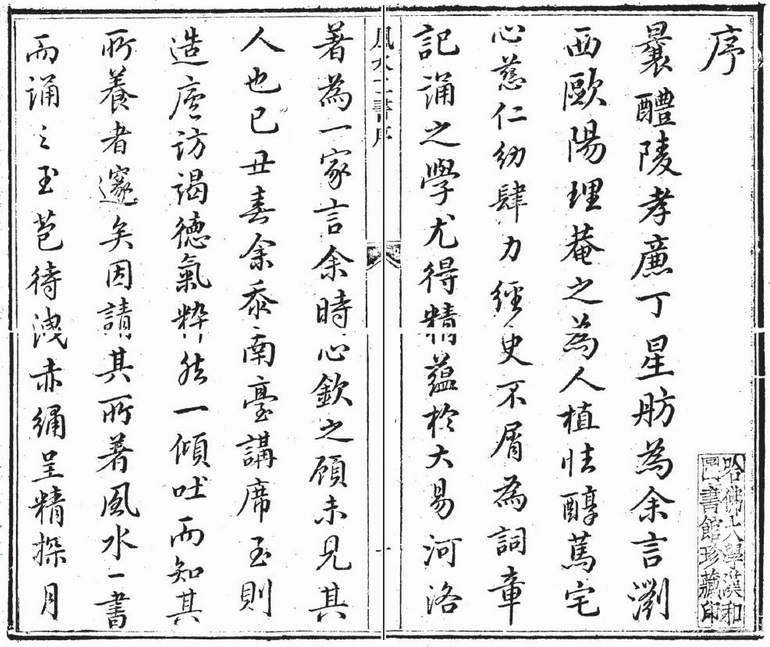 序
曩醴陵孝廉丁星舫為余言瀏
西歐陽理菴之為人植性醇篤宅
心慈仁幼肆力經史不屑為詞章
記誦之學尤得精蘊於大易河洛
哈佛大學漢和圖書館珍藏印
風水二書序
一
著為一家言余時心欽之顧未見其
人也己丑春余忝南臺講席至則
造廬訪謁德氣粹然一傾吐而知其
所養者邃矣因請其所著風水一書
而誦之玉苞待洩赤呈精探月